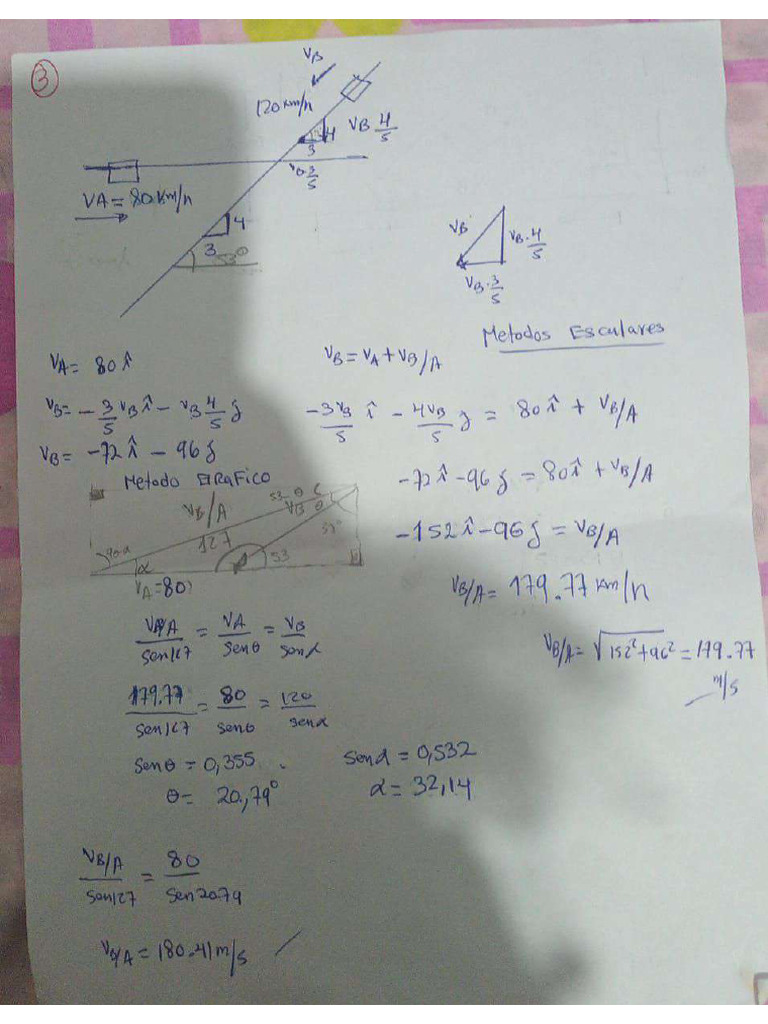 3
VB
120 km/h
4
3
VB 4/5
VB 3/5
VA = 80 km/h
4
3
53°
VB
VB·4/5
VB·3/5
Metodos Esculares
VA = 80 î
VB = VA + VB/A
VB = -3/5 VB î - VB 4/5 j
-3VB/5 î - 4VB/5 j = 80 î + VB/A
VB = -72 î - 96 j
-72 î - 96 j = 80 î + VB/A
Metodo GRAFICO
-152 î - 96 j = VB/A
53-θ
VB/A
VB θ
37°
127
90-α
α
53
VA = 80
VB/A = 179.77 km/h
VB/A / sen127 = VA / senθ = VB / senα
VB/A = √152² + 96² = 179.77
m/s
179.77 / sen127 = 80 / senθ = 120 / senα
senθ = 0,355
senα = 0,532
θ = 20,79°
α = 32,14
VB/A / sen127 = 80 / sen20.79
VB/A = 180.41 m/s